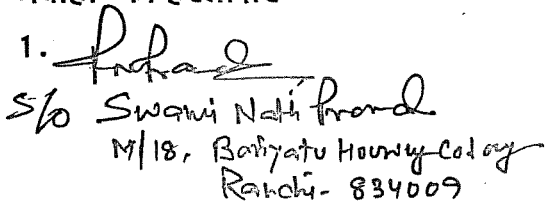 1. Prasad
S/o Swami Nath Prasad
M/18, Bariyatu Housing Colony
Ranchi - 834009